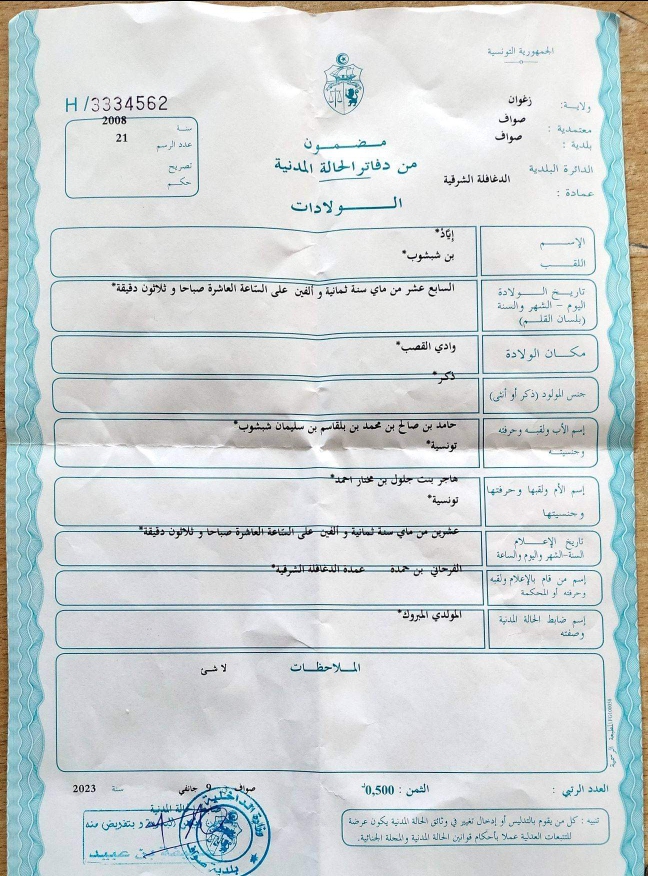 الجمهورية التونسية
ولاية: زغوان
معتمدية: صواف
بلدية: صواف
الدائرة البلدية
عمادة: الدغافلة الشرقية
H/3334562
سنة 2008
عدد الرسم 21
تصريح
حكم
مضمون
من دفاتر الحالة المدنية
الولادات
الإسم إيّاد*
اللقب بن شبشوب*
تاريخ الولادة السابع عشر من ماي سنة ثمانية و ألفين على السّاعة العاشرة صباحا و ثلاثون دقيقة*
اليوم - الشهر والسنة
(بلسان القلم)
مكان الولادة وادي القصب*
جنس المولود (ذكر أو أنثى) ذكر*
إسم الأب ولقبه وحرفته حامد بن صالح بن محمد بن بلقاسم بن سليمان شبشوب*
وجنسيته تونسية*
إسم الأم ولقبها وحرفتها هاجر بنت جلول بن مختار احمد*
وجنسيتها تونسية*
تاريخ الإعلام عشرين من ماي سنة ثمانية و ألفين على السّاعة العاشرة صباحا و ثلاثون دقيقة*
السنة-الشهر واليوم والساعة
إسم من قام بالإعلام ولقبه الفرجاني بن حمدة عمدة الدغافلة الشرقية*
وحرفته أو المحكمة
إسم ضابط الحالة المدنية المولدي المبروك*
وصفته
الملاحظات
لا شئ
العدد الرتبي :
الثمن : 0,500د
صواف 9 جانفي سنة 2023
تنبيه : كل من يقوم بالتدليس أو إدخال تغيير في وثائق الحالة المدنية يكون عرضة
للتتبعات العدلية عملا بأحكام قوانين الحالة المدنية والمجلة الجنائية.
الحالة المدنية
و بتفويض منه
بن عبيد
وزارة الداخلية
بلدية صواف